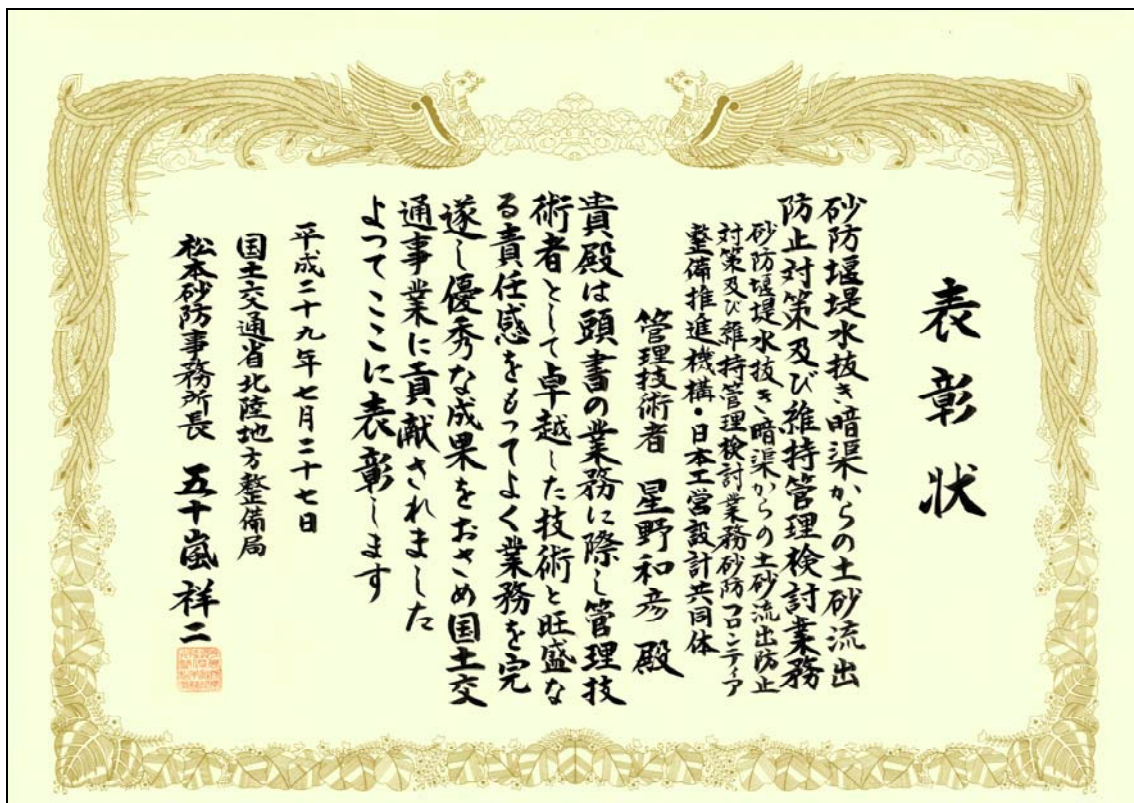 表彰状
砂防堰堤水抜き暗渠からの土砂流出
防止対策及び維持管理検討業務
砂防堰堤水抜き暗渠からの土砂流出防止
対策及び維持管理検討業務砂防フロンティア
整備推進機構・日本工営設計共同体
管理技術者 星野和彦 殿
貴殿は頭書の業務に際し管理技
術者として卓越した技術と旺盛な
る責任感をもってよく業務を完
遂し優秀な成果をおさめ国土交
通事業に貢献されました
よってここに表彰します
平成二十九年七月二十七日
国土交通省北陸地方整備局
松本砂防事務所長 五十嵐祥二